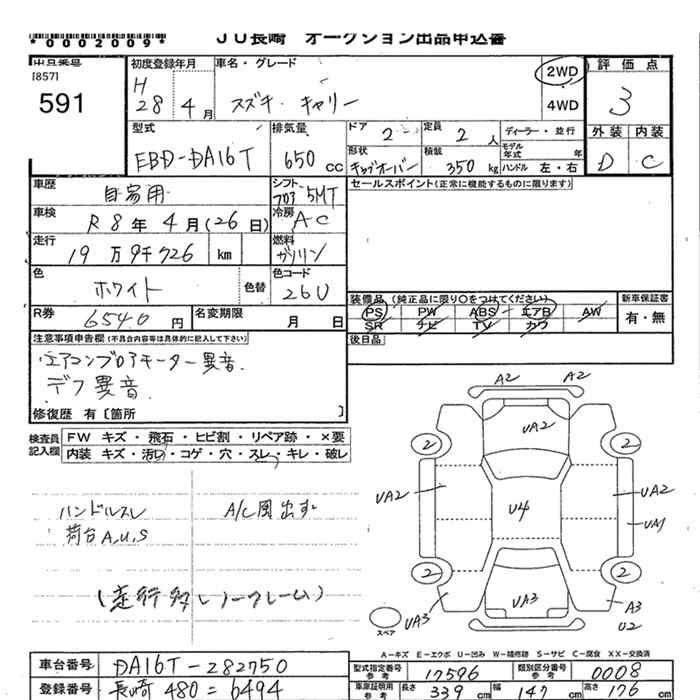 *0002009*
JU長崎 オークション出品申込書
出品番号
[857]
591
初度登録年月
H 28 4月
車名・グレード
スズキ・キャリー
2WD
4WD
評価点
3
外装 内装
D C
型式
EBD-DA16T
排気量
650 cc
ドア 2
定員 2 人
ディーラー・並行
モデル年式 年
形状
キャブオーバー
積載 350 kg
ハンドル 左・右
車歴
自家用
シフト
フロア 5MT
セールスポイント(正常に機能するものに限ります)
車検
R8年4月(26日)
冷房
AC
走行
19万9千726 km
燃料
ガソリン
色
ホワイト
色替
色コード
26U
R券
6540 円
名変期限
月 日
装備品(純正品に限り○をつけてください)
PS PW ABS エアB AW
SR ナビ TV カワ
新車保証書
有・無
後日品
注意事項申告欄(不具合内容等は具体的に記入して下さい)
エアコンブロアモーター異音.
デフ異音.
修復歴 有〔箇所 〕
検査員記入欄
FW キズ・飛石・ヒビ割・リペア跡・×要
内装 キズ・汚れ・コゲ・穴・スレ・キレ・破レ
ハンドルスレ
荷台A,U,S
A/C風出ず
(走行多しノークレーム)
A2 A2
UA2
2 2
UA2 U4 UA2
UA1
2 2
UA3 UA3 A3
U2
スペア
A-キズ E-エクボ U-凹み W-補修跡 S-サビ C-腐食 XX-交換済
車台番号
DA16T-282750
登録番号
長崎 480 = 6494
型式指定番号
参考
17596
類別区分番号
参考
0008
車庫証明用
参考
長さ 339 cm 幅 147 cm 高さ 176 cm